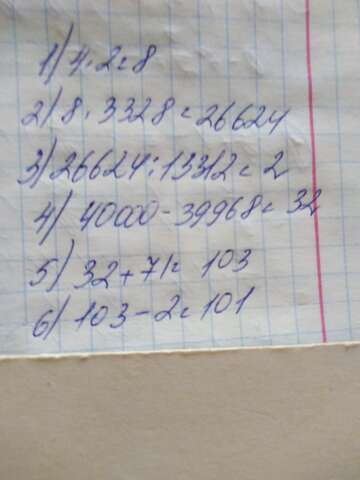 1) 4 · 2 = 8
2) 8 · 3328 = 26624
3) 26624 : 13312 = 2
4) 40000 - 39968 = 32
5) 32 + 71 = 103
6) 103 - 2 = 101